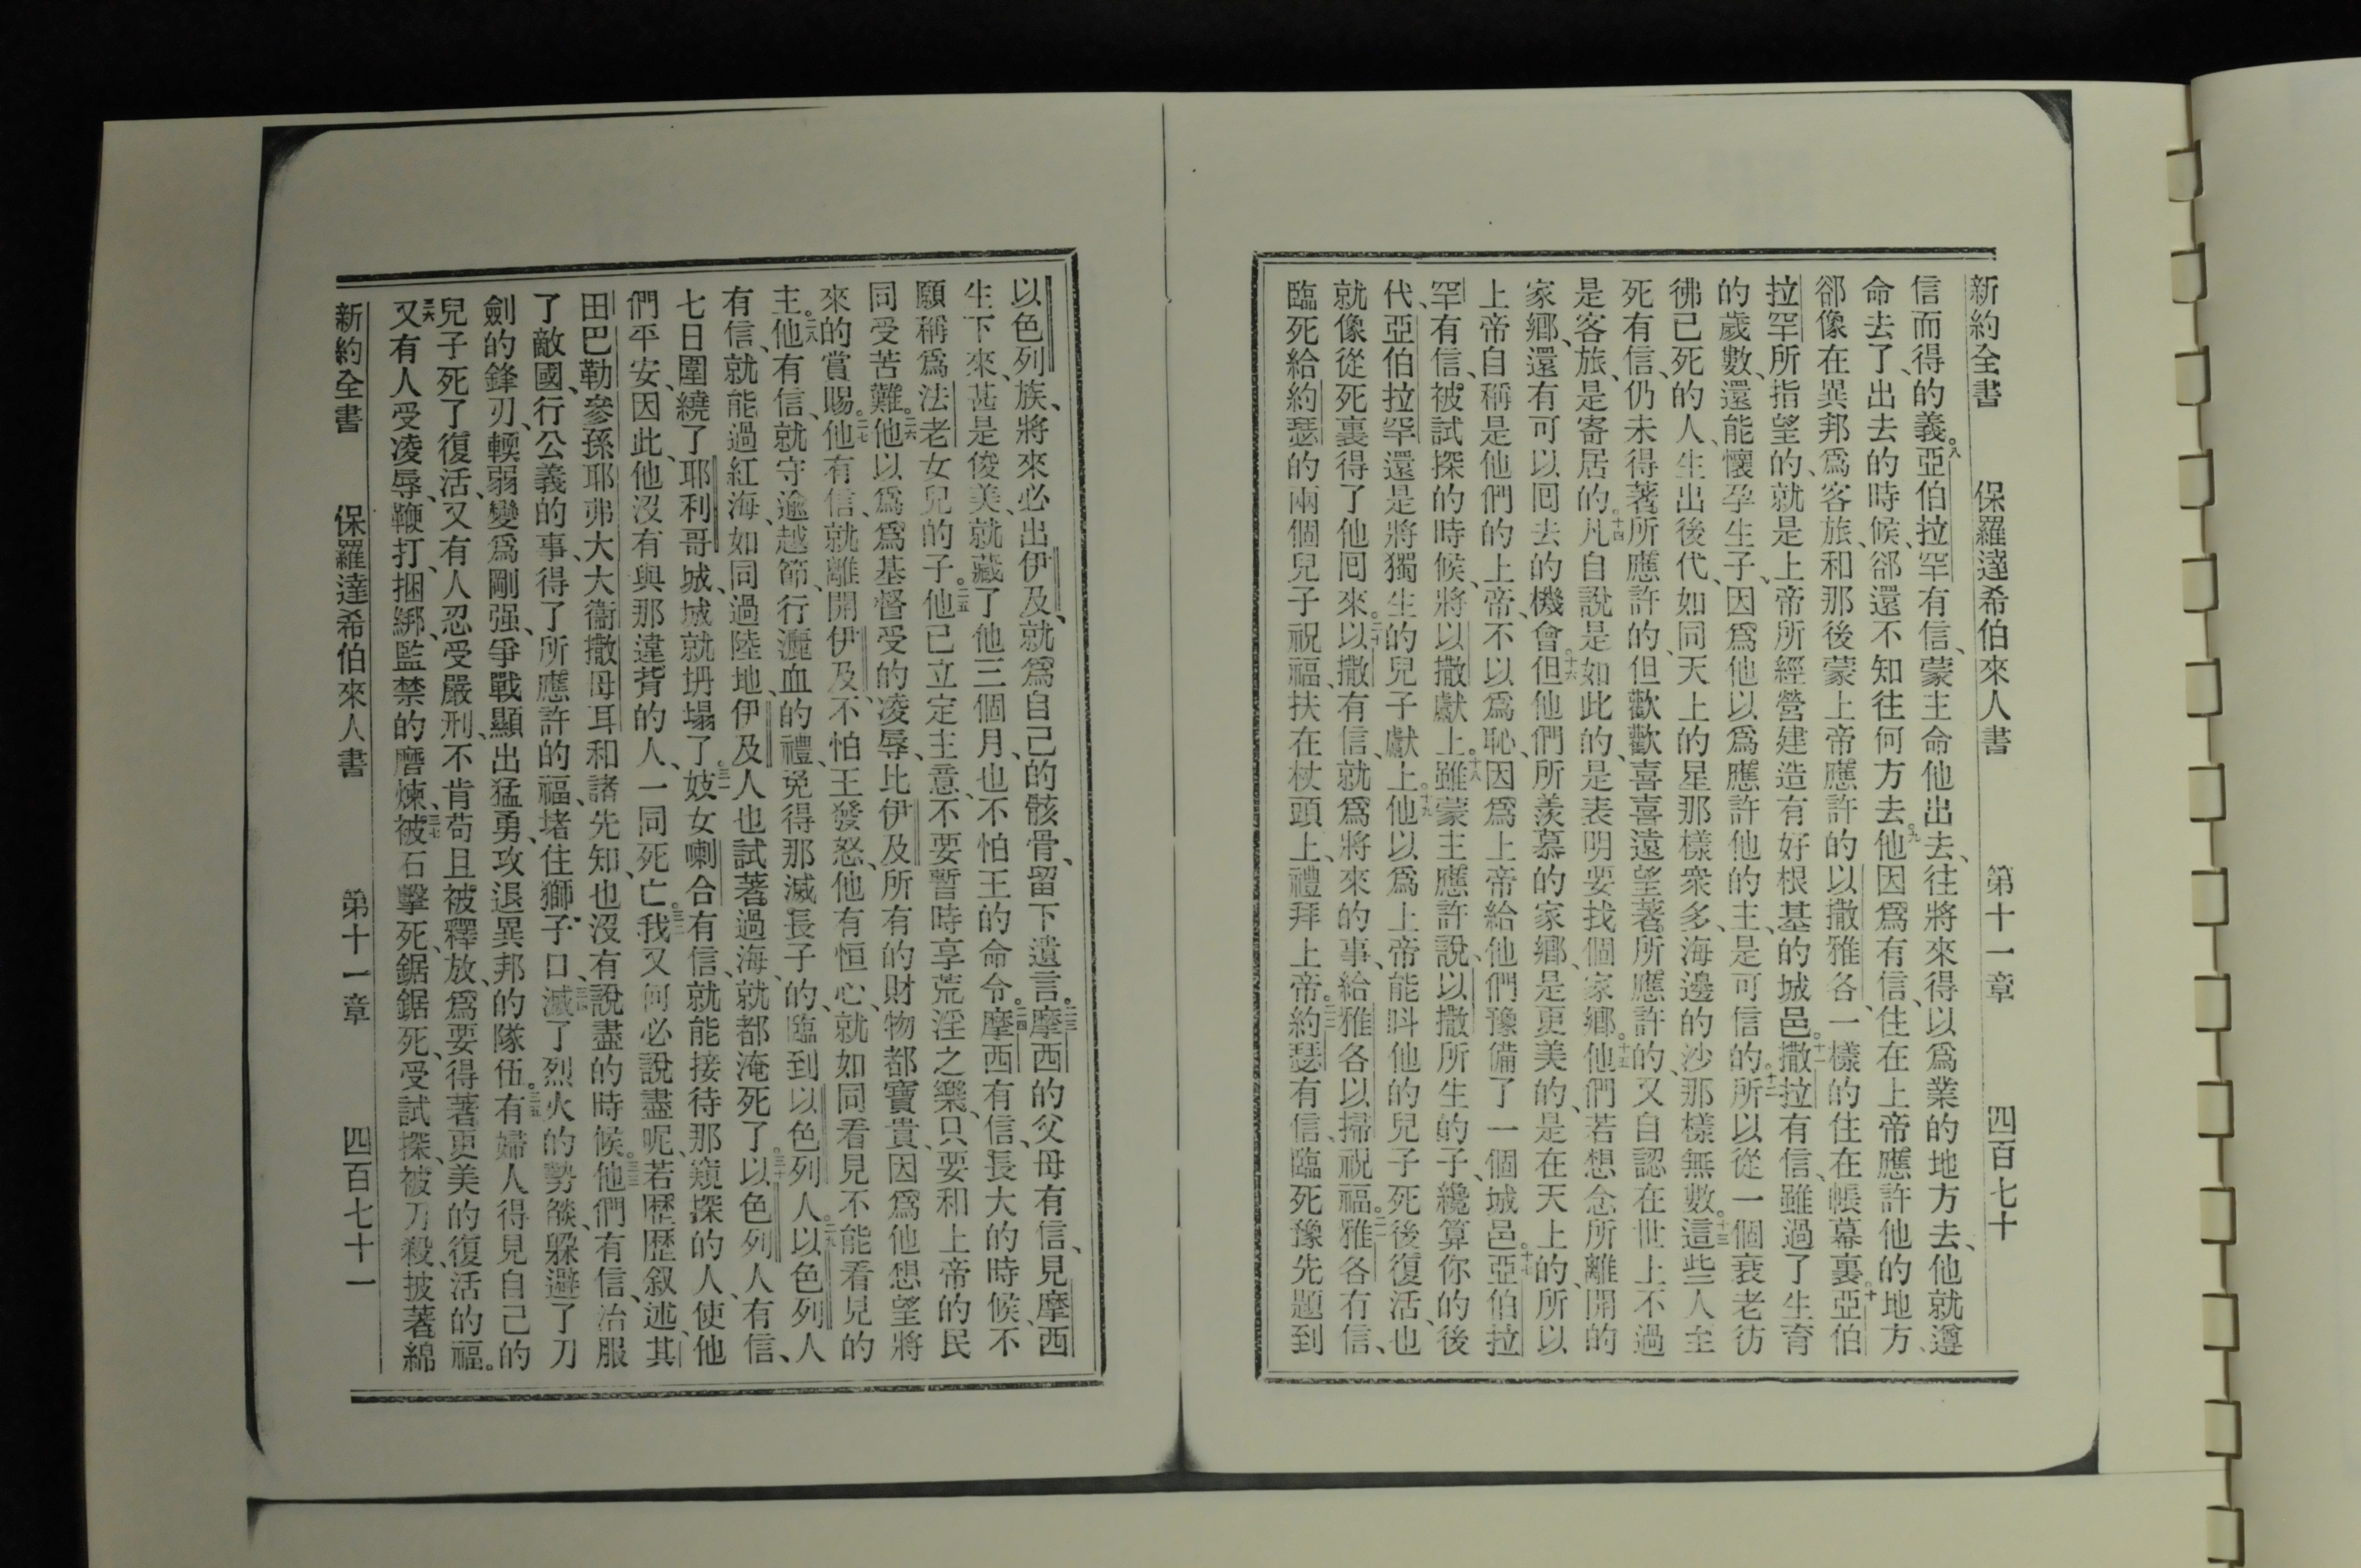 新約全書 保羅達希伯來人書 第十一章 四百七十
信而得的義。八亞伯拉罕有信、蒙主命他出去、往將來得以爲業的地方去、他就遵
命去了、出去的時候、郤還不知往何方去。九他因爲有信、住在上帝應許他的地方、
郤像在異邦爲客旅、和那後蒙上帝應許的以撒雅各、一樣的住在帳幕裏。十亞伯
拉罕所指望的、就是上帝所經營建造有好根基的城邑。十一撒拉有信、雖過了生育
的歲數、還能懷孕生子、因爲他以爲應許他的主、是可信的。十二所以從一個衰老彷
彿已死的人、生出後代、如同天上的星那樣衆多、海邊的沙那樣無數。十三這些人至
死有信、仍未得著所應許的、但歡歡喜喜遠望著所應許的、又自認在世上不過
是客旅、是寄居的。十四凡自說是如此的、是表明要找個家鄉。十五他們若想念所離開的
家鄉、還有可以囘去的機會。十六但他們所羨慕的家鄉、是更美的、是在天上的、所以
上帝自稱是他們的上帝、不以爲恥、因爲上帝給他們豫備了一個城邑。十七亞伯拉
罕有信、被試探的時候、將以撒獻上。十八雖蒙主應許說、以撒所生的子、纔算你的後
代、亞伯拉罕還是將獨生的兒子獻上。十九他以爲上帝能呌他的兒子死後復活、也
就像從死裏得了他囘來。二十以撒有信、就爲將來的事、給雅各以掃祝福。二一雅各有信、
臨死給約瑟的兩個兒子祝福、扶在杖頭上、禮拜上帝。二二約瑟有信、臨死豫先題到
以色列族、將來必出伊及、就爲自己的骸骨、留下遺言。二三摩西的父母有信、見摩西
生下來、甚是俊美、就藏了他三個月、也不怕王的命令。二四摩西有信、長大的時候、不
願稱爲法老女兒的子。二五他已立定主意、不要暫時享荒淫之樂、只要和上帝的民
同受苦難。二六他以爲爲基督受的凌辱、比伊及所有的財物都寶貴、因爲他想望將
來的賞賜。二七他有信、就離開伊及、不怕王發怒、他有恒心、就如同看見不能看見的
主。二八他有信、就守逾越節、行灑血的禮、免得那滅長子的、臨到以色列人。二九以色列人
有信、就能過紅海、如同過陸地、伊及人也試著過海、就都淹死了。三十以色列人有信、
七日圍繞了耶利哥城、城就坍塌了。三一妓女喇合有信、就能接待那窺探的人、使他
們平安、因此他沒有與那違背的人、一同死亡。三二我又何必說盡呢、若歷歷叙述、其
田巴勒參孫耶弗大大衞撒母耳和諸先知、也沒有說盡的時候。三三他們有信、治服
了敵國、行公義的事、得了所應許的福、堵住獅子口、三四滅了烈火的勢燄、躱避了刀
劍的鋒刃、輭弱變爲剛强、爭戰顯出猛勇、攻退異邦的隊伍。三五有婦人得見自己的
兒子死了復活、又有人忍受嚴刑、不肯苟且被釋放、爲要得著更美的復活的福。
三六又有人受凌辱、鞭打、捆綁、監禁的磨煉、三七被石擊死、鋸鋸死、受試探、被刀殺、披著綿
新約全書 保羅達希伯來人書 第十一章 四百七十一